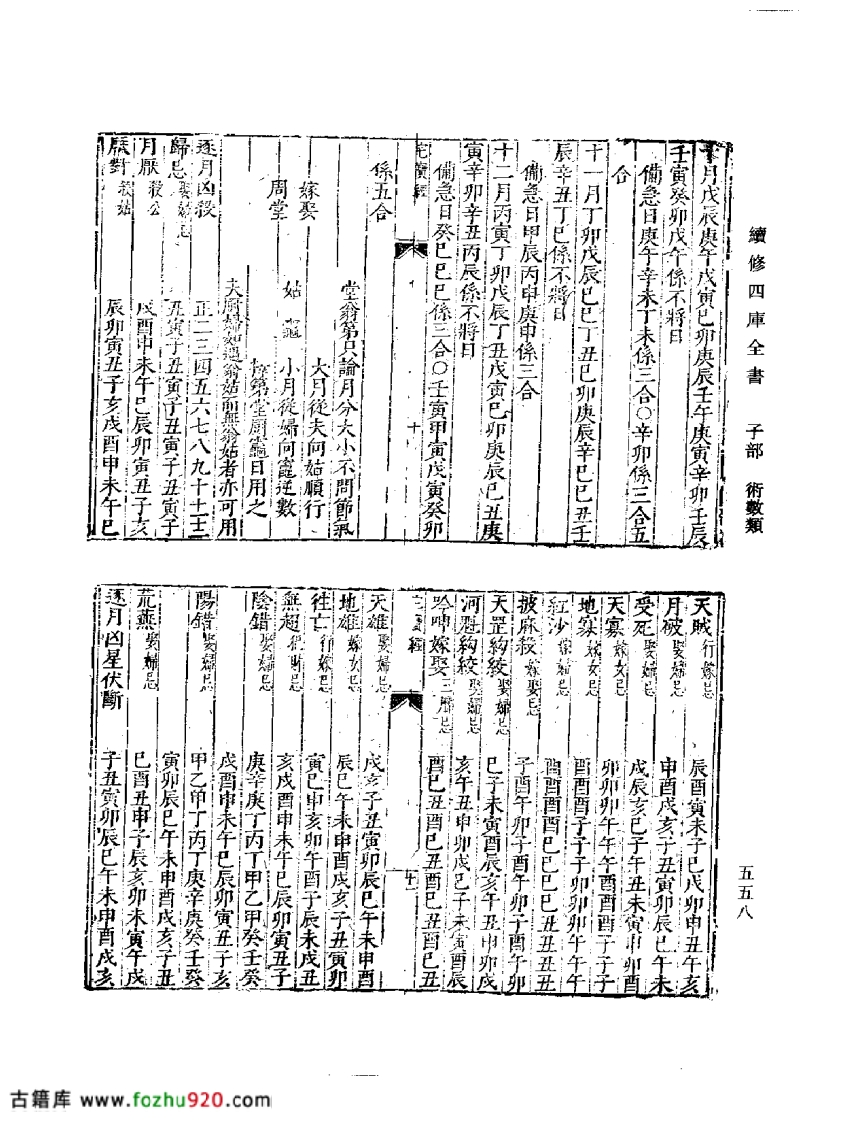 續修四庫全書 子部 術數類
五五八
十月戊辰庚午戊寅己卯庚辰壬午庚寅辛卯壬辰
壬寅癸卯戊午係不將日
備急日庚午辛未丁未係三合○辛卯係三合五
合
十一月丁卯戊辰己巳丁丑己卯庚辰辛巳己丑壬
辰辛丑丁巳係不將日
備急日甲辰丙申庚申係三合
十二月丙寅丁卯戊辰丁丑戊寅己卯庚辰己丑庚
寅辛卯辛丑丙辰係不將日
備急日癸巳乙巳係三合○壬寅甲寅戊寅癸卯
係五合
堂翁第只論月分大小不問節氣
嫁娶 大月從夫向姑順行
周堂 姑 竈 小月從婦向竈逆數
擇第堂厨竈日用之
夫厨婦如遇翁姑而無翁姑者亦可用
逐月凶殺 正二三四五六七八九十十一十二
歸忌娶婦忌 丑寅子丑寅子丑寅子丑寅子
月厭殺公 戌酉申未午巳辰卯寅丑子亥
厭對殺姑 辰卯寅丑子亥戌酉申未午巳
天賊行嫁忌 辰酉寅未子巳戌卯申丑午亥
月破娶婦忌 申酉戌亥子丑寅卯辰巳午未
受死娶婦忌 戌辰亥巳子午丑未寅申卯酉
天寡嫁女忌 卯卯卯午午午酉酉酉子子子
地寡嫁女忌 酉酉酉子子子卯卯卯午午午
紅沙嫁婦忌 酉酉酉酉巳巳巳巳丑丑丑丑
披麻殺嫁娶忌 子酉午卯子酉午卯子酉午卯
天罡勾絞娶婦忌 巳子未寅酉辰亥午丑申卯戌
河魁勾絞娶婦忌 亥午丑申卯戌巳子未寅酉辰
吟呻嫁娶三曆忌 酉巳丑酉巳丑酉巳丑酉巳丑
天雄娶婦忌 戌亥子丑寅卯辰巳午未申酉
地雄嫁女忌 辰巳午未申酉戌亥子丑寅卯
往亡行嫁忌 寅巳申亥卯午酉子辰未戌丑
無翹 亥戌酉申未午巳辰卯寅丑子
陰錯娶婦忌 庚辛庚丁丙丁甲乙甲癸壬癸
戌酉申未午巳辰卯寅丑子亥
陽錯娶婦忌 甲乙甲丁丙丁庚辛庚癸壬癸
寅卯辰巳午未申酉戌亥子丑
荒蕪娶婦忌 巳酉丑申子辰亥卯未寅午戌
逐月凶星伏斷 子丑寅卯辰巳午未申酉戌亥
古籍库 www.fozhu920.com